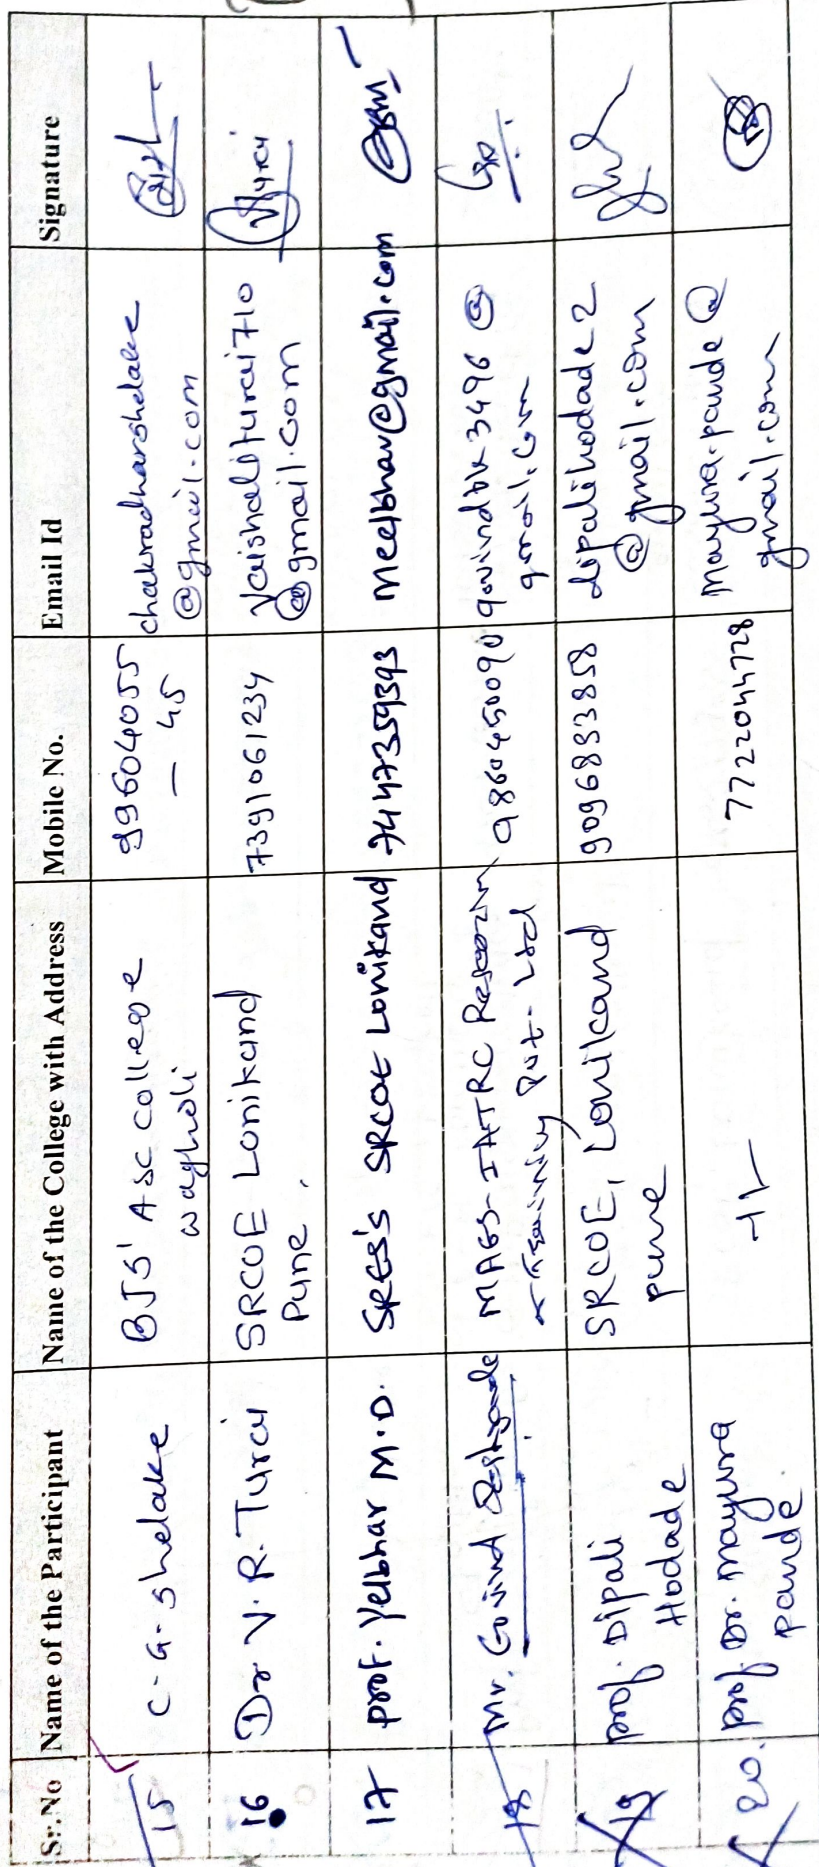 Sr.No Name of the Participant Name of the College with Address Mobile No. Email Id Signature
15 C-G-Shelake BJS' ASC College 99604055 chakradharshelake
wagholi - 45 @gmail.com
16 Dr V.R. Turai SRCOE Lonikand 7391061234 Vaishaliturai710
Pune. @gmail.com
17 prof. Yelbhar M.D. SRES's SRCOE Lonikand 7447359393 meelbhar@gmail.com
18 Mr. Govind Deshpande MAGS-IATRC 9860450090 govindblk3496@
Pvt. Ltd gmail.com
19 prof. Dipali SRCOE, Lonikand 9096883858 dipalihodade2
Hodade pune @gmail.com
20. prof. Dr. Mayura -11- 7722044728 Mayura.pande@
pande. gmail.com